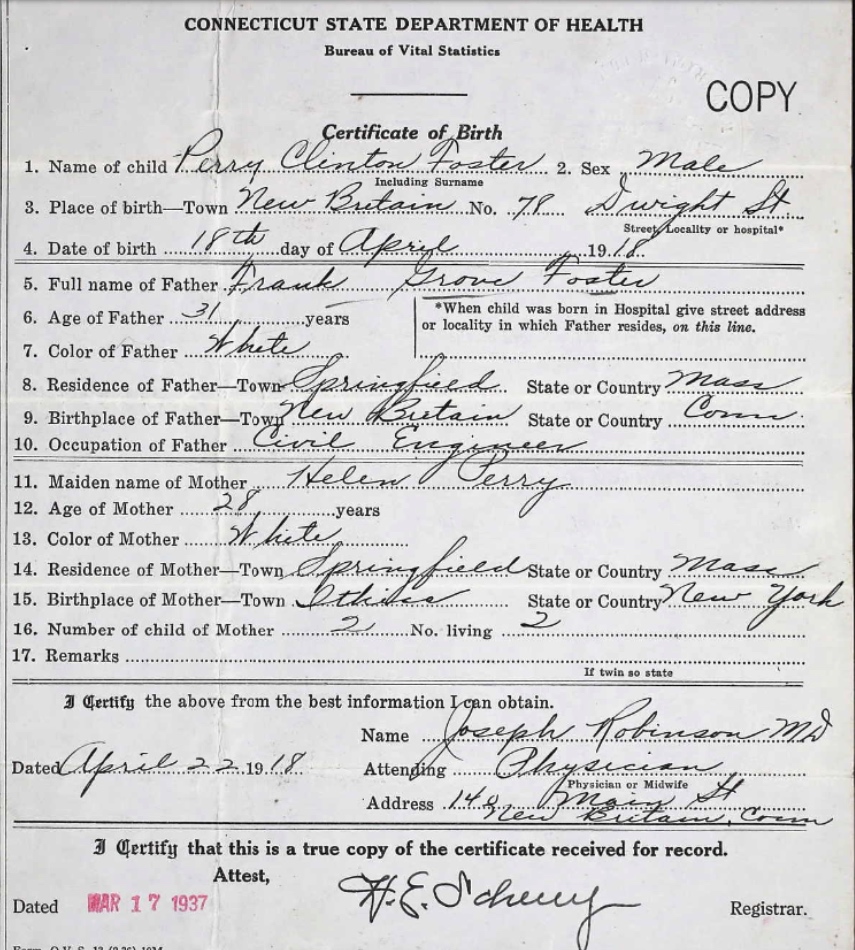 CONNECTICUT STATE DEPARTMENT OF HEALTH
Bureau of Vital Statistics
COPY
Certificate of Birth
1. Name of child Perry Clinton Foster 2. Sex Male
Including Surname
3. Place of birth—Town New Britain No. 78 Dwight St.
Street, Locality or hospital*
4. Date of birth 18th day of April 1918
5. Full name of Father Frank Grove Foster
6. Age of Father 31 years
*When child was born in Hospital give street address
or locality in which Father resides, on this line.
7. Color of Father White
8. Residence of Father—Town Springfield State or Country Mass
9. Birthplace of Father—Town New Britain State or Country Conn.
10. Occupation of Father Civil Engineer
11. Maiden name of Mother Helen Perry
12. Age of Mother 28 years
13. Color of Mother White
14. Residence of Mother—Town Springfield State or Country Mass
15. Birthplace of Mother—Town State or Country New York
16. Number of child of Mother 2 No. living 2
17. Remarks
If twin so state
I Certify the above from the best information I can obtain.
Name Joseph Robinson MD
Dated April 22 1918 Attending Physician
Physician or Midwife
Address Main St
New Britain, Conn
I Certify that this is a true copy of the certificate received for record.
Attest,
Dated MAR 17 1937 H.E. Registrar.